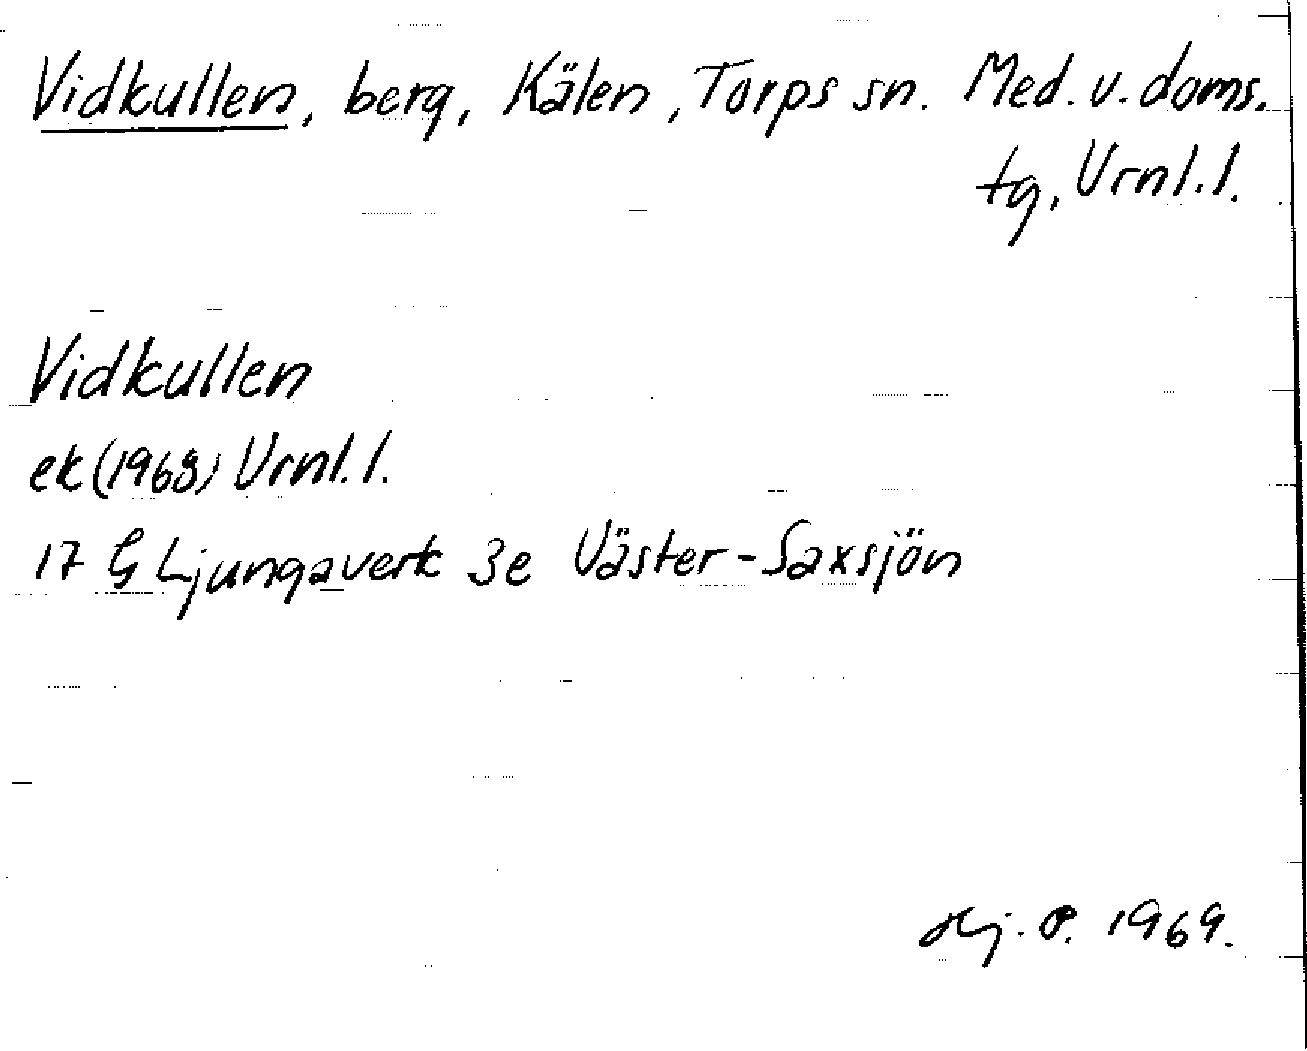 Vidkullen, berg, Kälen, Torps sn. Med. v. doms.
tg, Vrnl.l.
Vidkullen
ek (1968) Vrnl.l.
17 G Ljungaverk 3e Väster-Saxsjön
Hj. P. 1969.